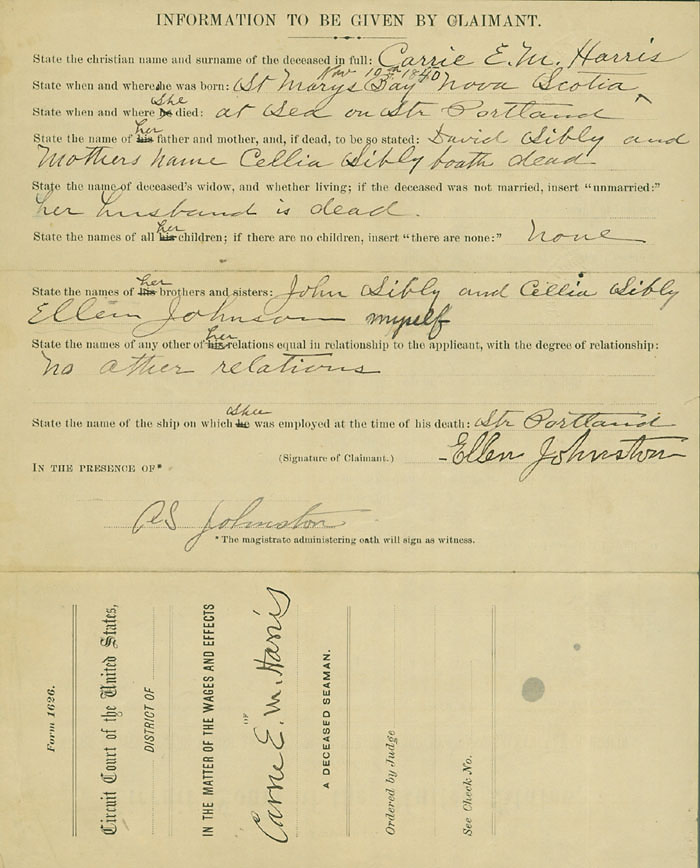 INFORMATION TO BE GIVEN BY CLAIMANT.
State the christian name and surname of the deceased in full: Carrie E. M. Harris
Nov 19th 1840
State when and where he was born: St Marys Bay Nova Scotia
She
State when and where he died: at Sea on Str Portland
her
State the name of his father and mother, and, if dead, to be so stated: David Sibly and
Mothers name Cellia Sibly boath dead
State the name of deceased's widow, and whether living; if the deceased was not married, insert "unmarried:"
her husband is dead.
her
State the names of all his children; if there are no children, insert "there are none:" none
her
State the names of his brothers and sisters: John Sibly and Cellia Sibly
Ellen Johnson myself
her
State the names of any other of his relations equal in relationship to the applicant, with the degree of relationship:
no other relations
Shee
State the name of the ship on which he was employed at the time of his death: Str Portland
(Signature of Claimant.) Ellen Johnston
IN THE PRESENCE OF*
Johnston
*The magistrate administering oath will sign as witness.
Form 1626.
Circuit Court of the United States,
DISTRICT OF
IN THE MATTER OF THE WAGES AND EFFECTS
OF
Carrie E. M. Harris
A DECEASED SEAMAN.
Ordered by Judge
See Check No.